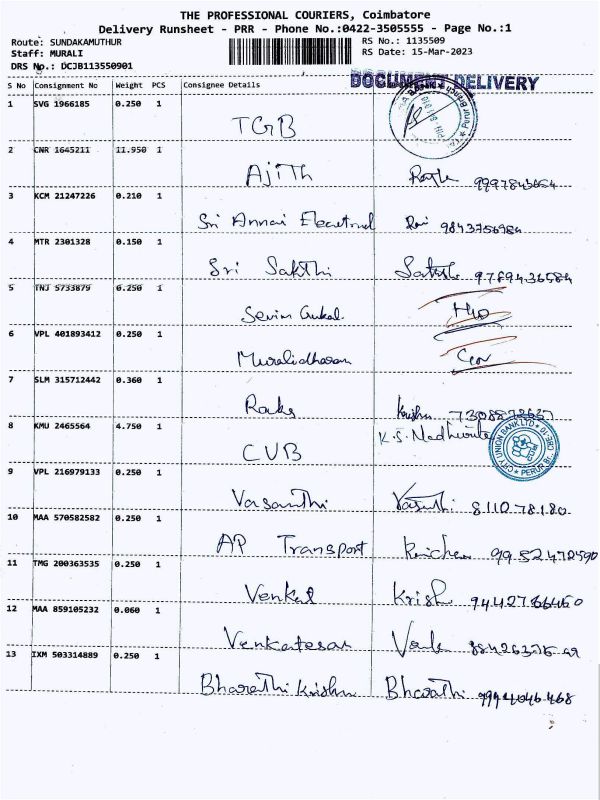 THE PROFESSIONAL COURIERS, Coimbatore
Delivery Runsheet - PRR - Phone No.:0422-3505555 - Page No.:1
Route: SUNDAKAMUTHUR RS No.: 1135509
Staff: MURALI RS Date: 15-Mar-2023
DRS No.: DCJB113550901
DOCUMENT DELIVERY
S No Consignment No Weight PCS Consignee Details
1 SVG 1966185 0.250 1
TGB
2 CNR 1645211 11.950 1
Ajith
3 KCM 21247226 0.210 1
Sri Annai Electrical
4 MTR 2301328 0.150 1
Sri Sakthi
5 TNJ 5733879 0.250 1
6 VPL 401893412 0.250 1
Muralidharan
7 SLM 315712442 0.360 1
8 KMU 2465564 4.750 1
CUB
CITY UNION BANK LTD
9 VPL 216979133 0.250 1
Vasanthi 8110278180
10 MAA 570582582 0.250 1
AP Transport
11 TMG 200363535 0.250 1
Venkat Krish
12 MAA 859105232 0.060 1
Venkatesan
13 IXM 503314889 0.250 1
Bharathi Krishna Bharathi